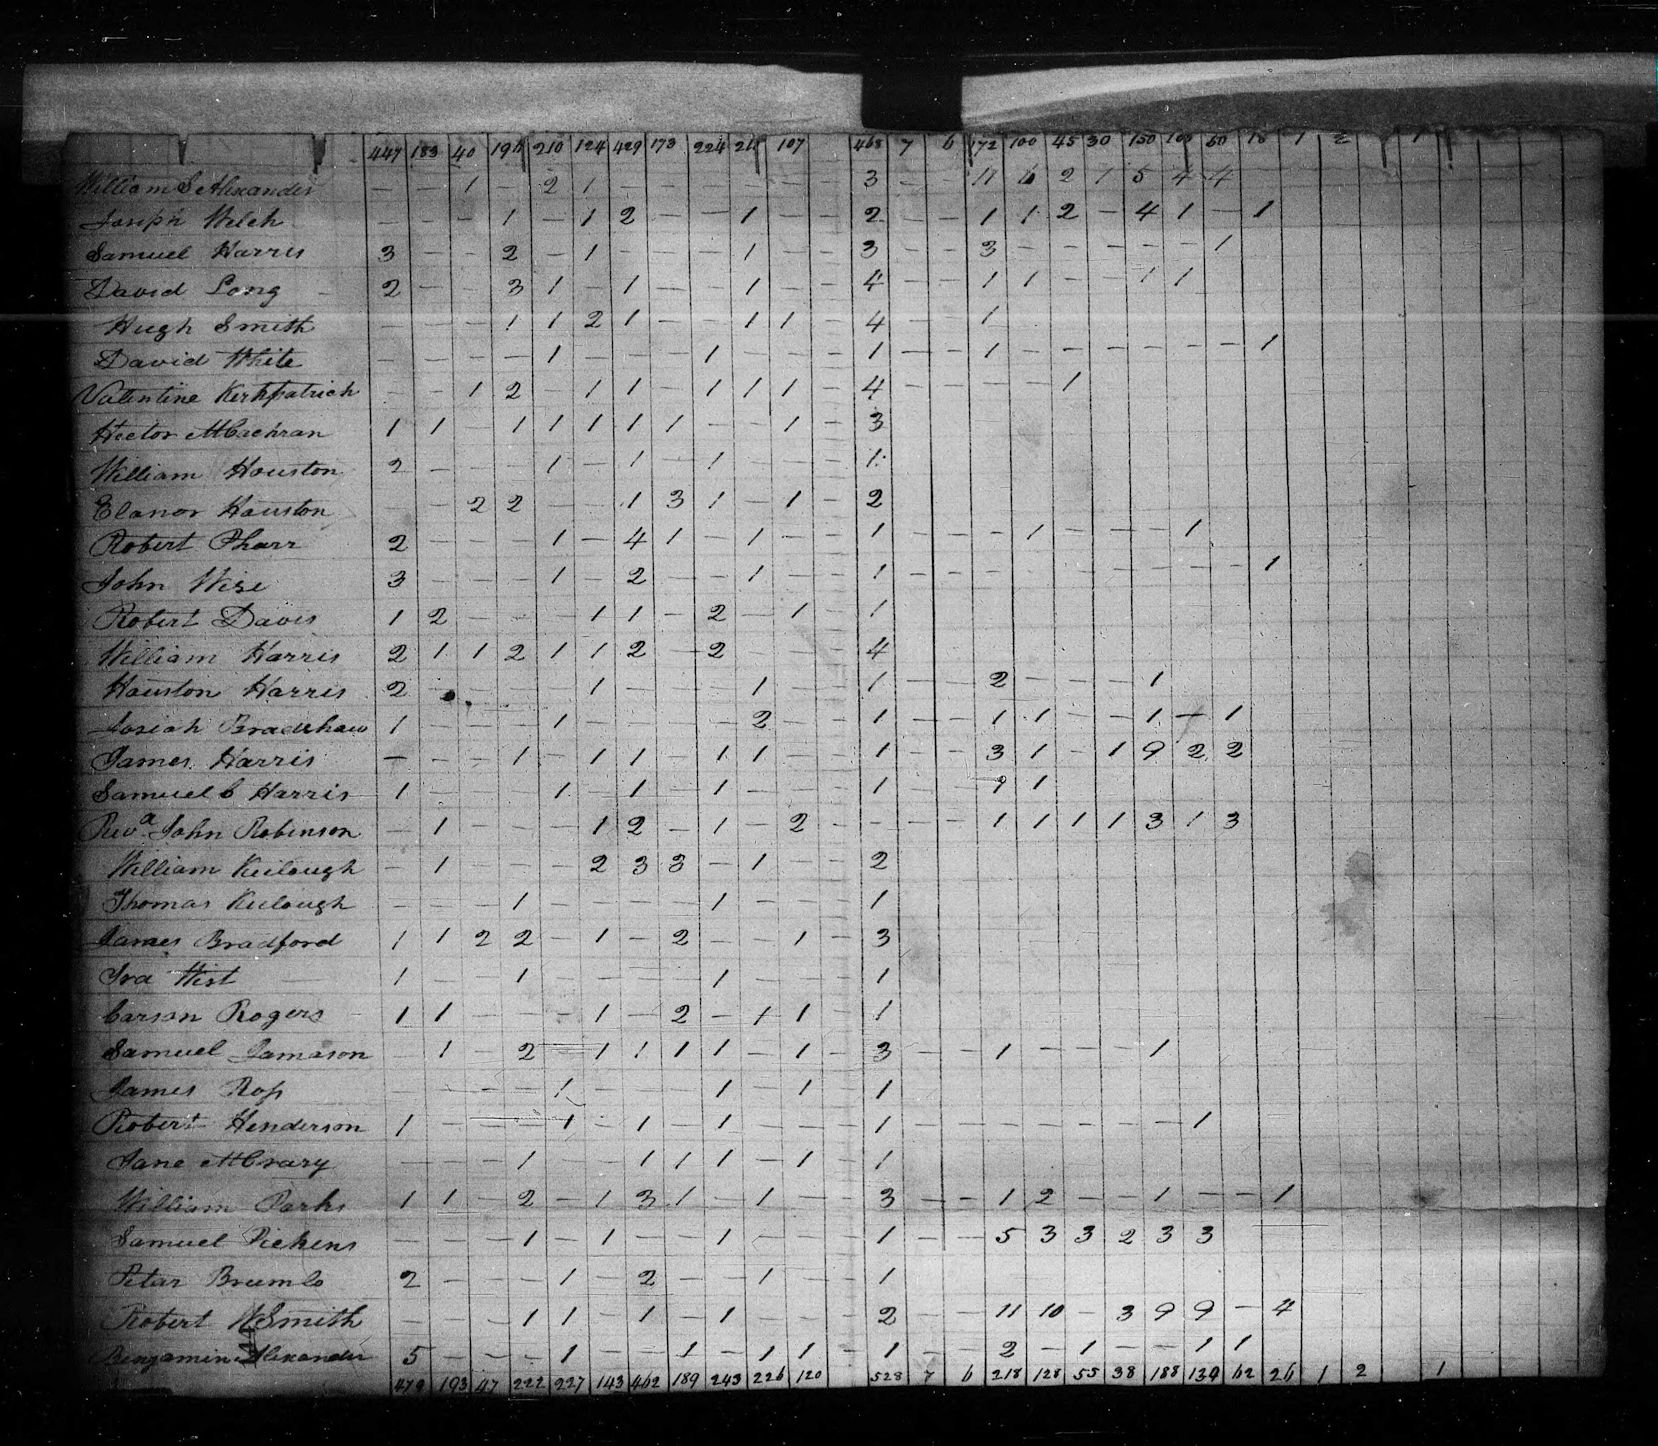 447 183 40 196 210 124 429 173 224 216 107 468 7 6 172 100 45 30 150 100 50 18 1 2 1
William S Alexander — — 1 — 2 1 — — — — — — 3 — — 11 6 2 1 5 4 4
Joseph Welch — — — 1 — 1 2 — — 1 — — 2 — — 1 1 2 — 4 1 — 1
Samuel Harris 3 — — 2 — 1 — — — 1 — — 3 — — 3 — — — — — 1
David Long 2 — — 3 1 — 1 — — 1 — — 4 — — 1 1 — — 1 1
Hugh Smith — — — 1 1 2 1 — — 1 1 — 4 — — 1
David White — — — — 1 — — — 1 — — — 1 — — 1 — — — — — — 1
Valentine Kirkpatrick — — 1 2 — 1 1 — 1 1 1 — 4 — — — — 1
Hector McCachran 1 1 — 1 1 1 1 1 — — 1 — 3
William Houston 2 — — — 1 — 1 — 1 — — — 1
Elanor Houston — — 2 2 — — 1 3 1 — 1 — 2
Robert Pharr 2 — — — 1 — 4 1 — 1 — — 1 — — — 1 — — — 1
John Wise 3 — — — 1 — 2 — — 1 — — 1 — — — — — — — — — 1
Robert Davis 1 2 — — — 1 1 — 2 — 1 — 1
William Harris 2 1 1 2 1 1 2 — 2 — — — 4
Houston Harris 2 — — — — 1 — — — 1 — — 1 — — 2 — — — 1
Josiah Bradshaw 1 — — — 1 — — — — 2 — — 1 — — 1 1 — — 1 — 1
James Harris — — — 1 — 1 1 — 1 1 — — 1 — — 3 1 — 1 9 2 2
Samuel C Harris 1 — — — 1 — 1 — 1 — — — 1 — — 9 1
Revd John Robinson — 1 — — — 1 2 — 1 — 2 — — — — 1 1 1 1 3 1 3
William Keilough — 1 — — — 2 3 3 — 1 — — 2
Thomas Keilough — — — 1 — — — — 1 — — — 1
James Bradford 1 1 2 2 — 1 — 2 — — 1 — 3
Ira West 1 — — 1 — — — — 1 — — — 1
Carson Rogers 1 1 — — — 1 — 2 — 1 1 — 1
Samuel Jamason — 1 — 2 — 1 1 1 1 — 1 — 3 — — 1 — — — 1
James Ross — — — — 1 — — — 1 — 1 — 1
Robert Henderson 1 — — — 1 — 1 — 1 — — — 1 — — — — — — — 1
Jane McCrary — — — 1 — — 1 1 1 — 1 — 1
William Parks 1 1 — 2 — 1 3 1 — 1 — — 3 — — 1 2 — — 1 — — 1
Samuel Pickens — — — 1 — 1 — — 1 — — — 1 — — 5 3 3 2 3 3
Petar Brumlo 2 — — — 1 — 2 — — 1 — — 1
Robert W Smith — — — 1 1 — 1 — 1 — — — 2 — — 11 10 — 3 9 9 — 4
Benjamin Alexander 5 — — — 1 — — 1 — 1 1 — 1 — 2 — 1 — — 1 1
479 193 47 222 227 143 462 189 243 226 120 528 7 6 218 128 55 38 188 130 62 26 1 2 1